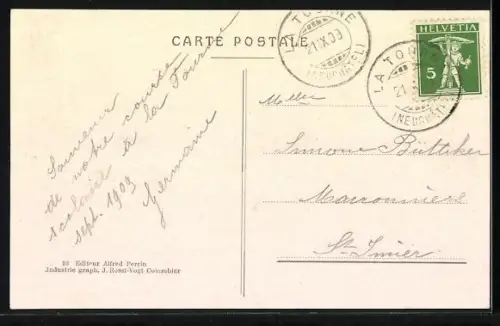 CARTE POSTALE
LA TOURNE
21.X.09
(NEUCHATEL)
HELVETIA
5
LA TOURNE
21.
(NEUCHATEL)
Souvenir
de notre course
scolaire à la Tourne
sept. 1909
Germaine
Melle
Simone Büttiker
Maronniers
St-Imier
98 Editeur Alfred Perrin
Industrie graph. J. Rossi-Vogt Colombier